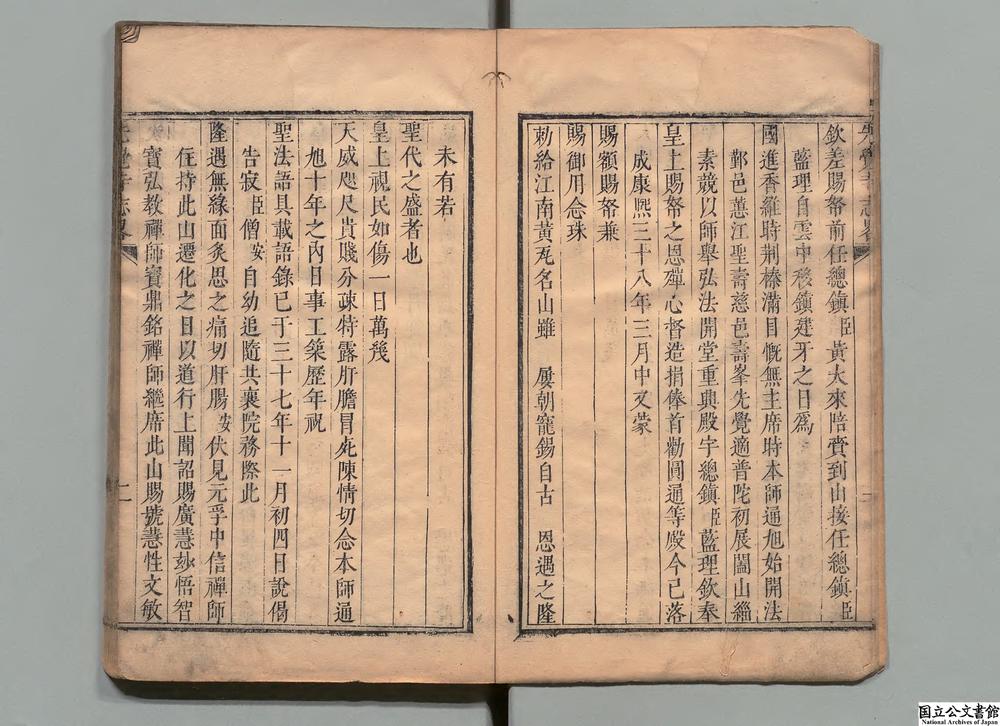 欽差賜帑前任總鎮臣黃大來陪賫到山接任總鎮臣
藍理自雲中移鎮建牙之日爲
國進香維時荆榛滿目慨無主席時本師通旭始開法
鄞邑蕙江聖壽慈邑壽峯先覺適普陀初展闔山緇
素競以師舉弘法開堂重興殿宇總鎮臣藍理欽奉
皇上賜帑之恩殫心督造捐俸首勸圓通等殿今已落
成康熙三十八年三月中又蒙
賜額賜帑兼
賜御用念珠
勅給江南黃瓦名山雖　屢朝寵錫自古　恩遇之隆
未有若
聖代之盛者也
皇上視民如傷一日萬幾
天威咫尺貴賤分疎特露肝膽冒死陳情切念本師通
旭十年之內日事工築歷年祝
聖法語具載語錄已于三十七年十一月初四日說偈
告寂臣僧安自幼追隨共襄院務際此
隆遇無緣面炙思之痛切肝腸安伏見元孚中信禪師
住持此山遷化之日以道行上聞詔賜廣慧玅悟智
寶弘教禪師寶鼎銘禪師繼席此山賜號慧性文敏
二
国立公文書館
National Archives of Japan